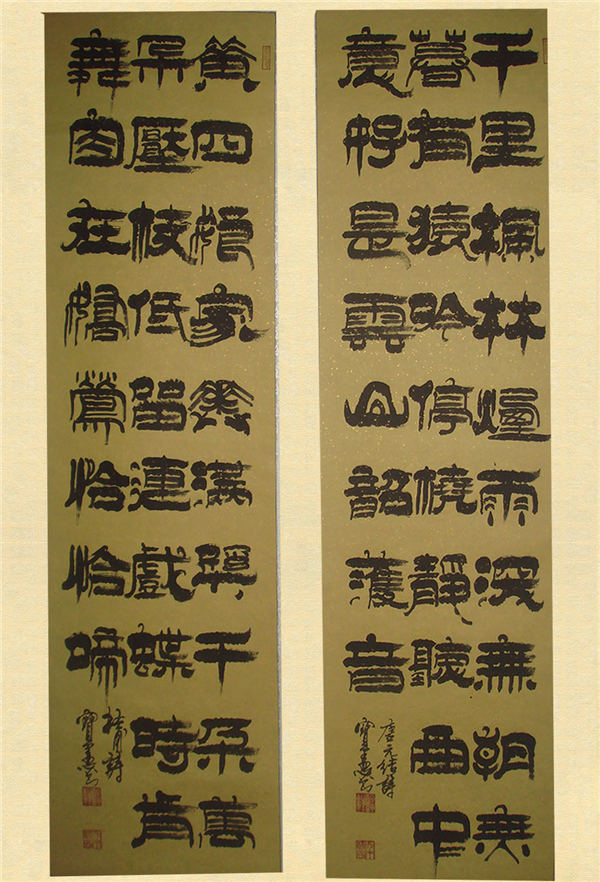 千里楓林煙雨深無朝无
暮有猿吟停橈靜聽曲中
意好是雲山韶濩音
唐元结詩
黃四娘家花滿蹊千朵萬
朵壓枝低留連戲蝶時時
舞自在嬌鶯恰恰啼
杜甫詩